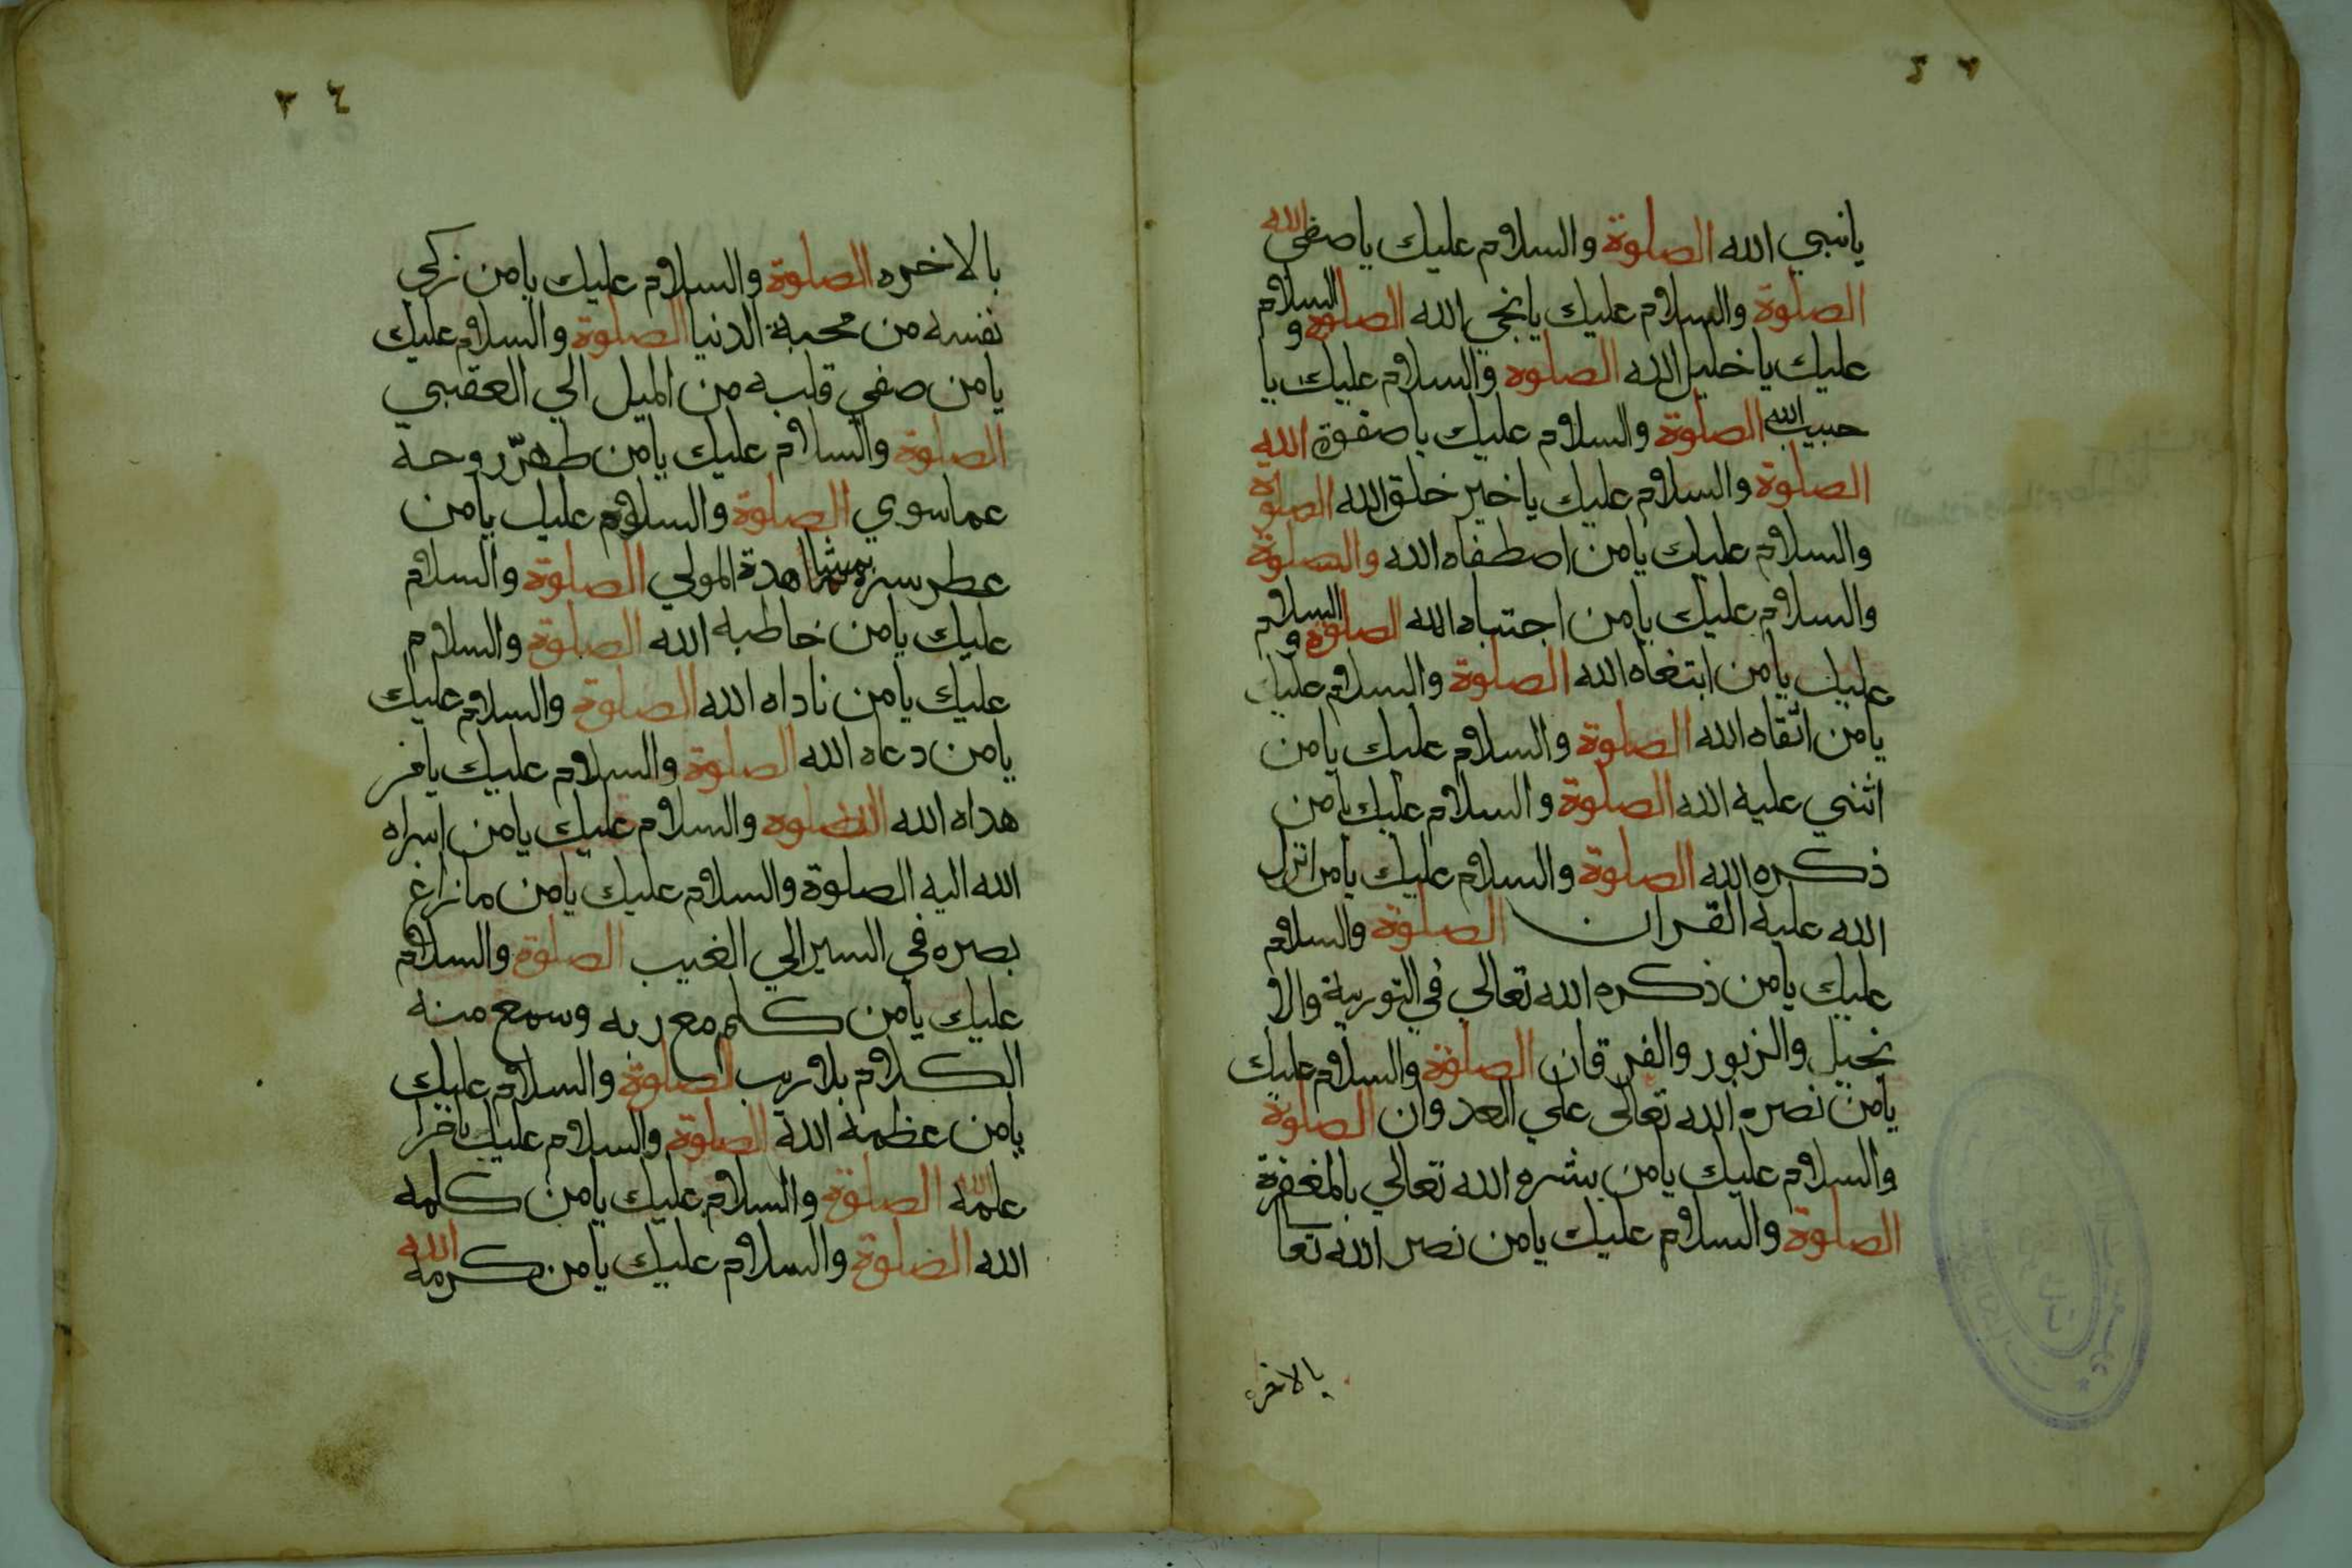 يانبي الله الصلوة والسلام عليك ياصفي الله
الصلوة والسلام عليك يانجي الله الصلوة والسلام
عليك ياخليل الله الصلوه والسلام عليك يا
حبيب الله الصلوة والسلام عليك ياصفوة الله
الصلوة والسلام عليك ياخير خلق الله الصلوة
والسلام عليك يامن اصطفاه الله والصلوة
والسلام عليك يامن اجتباه الله الصلوة والسلام
عليك يامن ابتغاه الله الصلوة والسلام عليك
يامن اتقاه الله الصلوة والسلام عليك يامن
اثني عليه الله الصلوة والسلام عليك يامن
ذكره الله الصلوة والسلام عليك يامن انزل
الله عليه القران الصلوة والسلام
عليك يامن ذكره الله تعالي في التورية والا
نجيل والزبور والفرقان الصلوة والسلام عليك
يامن نصره الله تعالى علي العدوان الصلوة
والسلام عليك يامن بشره الله تعالي بالمغفرة
الصلوة والسلام عليك يامن نصر الله تعا
بالاخره
٣٤
بالاخره الصلوة والسلام عليك يامن زكي
نفسه من محبة الدنيا الصلوة والسلام عليك
يامن صفي قلبه من الميل الي العقبي
الصلوة والسلام عليك يامن طهّر روحه
عماسوي الصلوة والسلام عليك يامن
عطر سره بمشاهدة المولي الصلوة والسلام
عليك يامن خاطبه الله الصلوة والسلام
عليك يامن ناداه الله الصلوة والسلام عليك
يامن دعاه الله الصلوة والسلام عليك يامن
هداه الله الصلوه والسلام عليك يامن اسراه
الله اليه الصلوة والسلام عليك يامن مازاغ
بصره في السير الي الغيب الصلوة والسلام
عليك يامن كلم مع ربه وسمع منه
الكلام بلاريب الصلوة والسلام عليك
يامن عظمه الله الصلوة والسلام عليك
علمه الله الصلوة والسلام عليك يامن كلمه
الله الصلوة والسلام عليك يامن كرمه الله